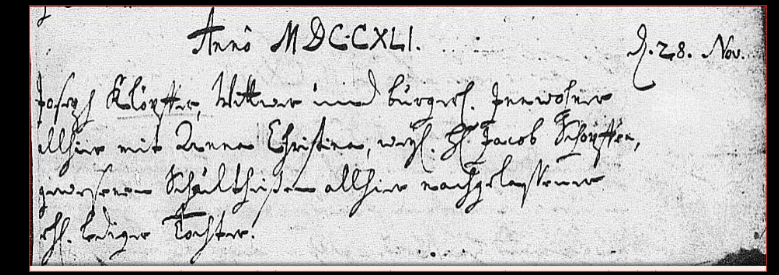 Anno MDCCXLI.
d. 28. Nov.
Joseph Klöpffer, Wittwer und burgerl. Innwohner
allhier mit Annen Christina, weyl. H. Jacob Schöpffen,
gewesenen Schultheißen allhier nachgelassener
ehl. lediger Tochter.